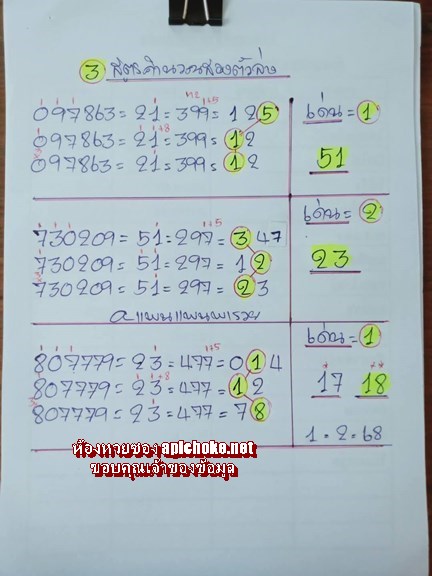 3 สูตรคำนวนสองตัวล่าง
+12 +5
097863 = 21 = 399 = 125
เด่น = 1
+8
097863 = 21 = 399 = 12
097863 = 21 = 399 = 12
51
เด่น = 2
+5
730209 = 51 = 297 = 347
730209 = 51 = 297 = 12
23
730209 = 51 = 297 = 23
aแพนแพนพารวย
เด่น = 1
+5
807779 = 23 = 477 = 014
+8
807779 = 23 = 477 = 12
17 18
807779 = 23 = 477 = 78
1 = 2 = 68
ห้องหวยซอง apichoke.net
ขอบคุณเจ้าของข้อมูล